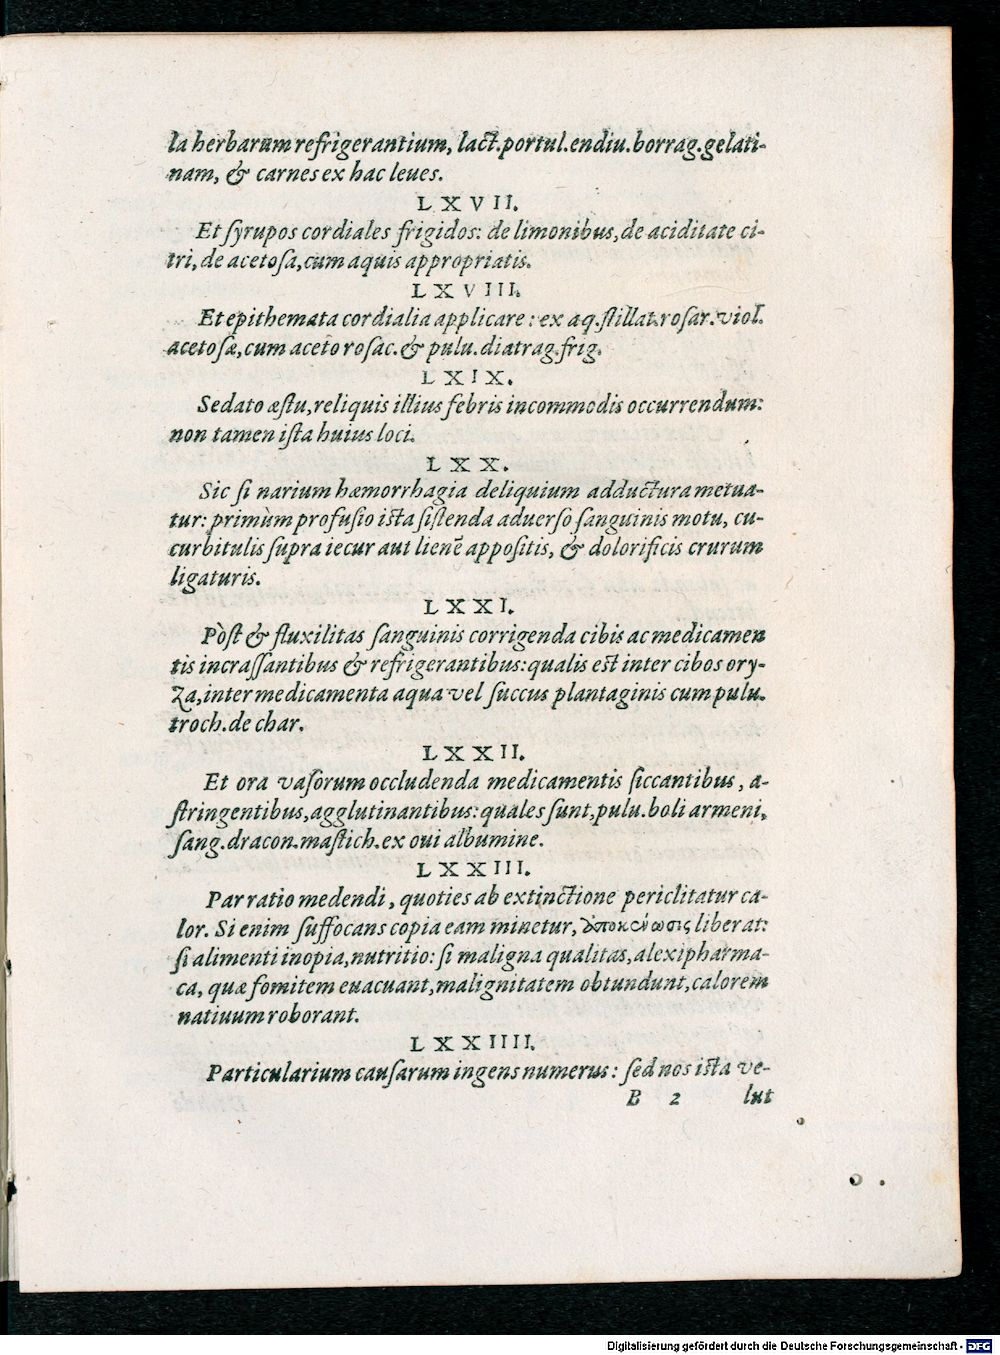 la herbarum refrigerantium, lact.portul.endiu.borrag.gelati-
nam, & carnes ex hac leues.
LXVII.
Et ſyrupos cordiales frigidos: de limonibus, de aciditate ci-
tri, de acetoſa, cum aquis appropriatis.
LXVIII.
Et epithemata cordialia applicare: ex aq.ſtillat.roſar.viol.
acetoſæ, cum aceto roſac. & pulu. diatrag.frig.
LXIX.
Sedato æſtu, reliquis illius febris incommodis occurrendum:
non tamen iſta huius loci.
LXX.
Sic ſi narium hæmorrhagia deliquium adductura metua-
tur: primùm profuſio iſta ſiſtenda aduerſo ſanguinis motu, cu-
curbitulis ſupra iecur aut lienē appoſitis, & dolorificis crurum
ligaturis.
LXXI.
Pòſt & fluxilitas ſanguinis corrigenda cibis ac medicamen
tis incraſſantibus & refrigerantibus: qualis eſt inter cibos ory-
za, inter medicamenta aqua vel ſuccus plantaginis cum pulu.
troch. de char.
LXXII.
Et ora vaſorum occludenda medicamentis ſiccantibus, a-
ſtringentibus, agglutinantibus: quales ſunt, pulu. boli armeni,
ſang. dracon. maſtich. ex oui albumine.
LXXIII.
Par ratio medendi, quoties ab extinctione periclitatur ca-
lor. Si enim ſuffocans copia eam minetur, ἀποκένωσις liberat:
ſi alimenti inopia, nutritio: ſi maligna qualitas, alexipharma-
ca, quæ fomitem euacuant, malignitatem obtundunt, calorem
natiuum roborant.
LXXIIII.
Particularium cauſarum ingens numerus: ſed nos iſta ve-
B 2 lut
Digitalisierung gefördert durch die Deutsche Forschungsgemeinschaft - DFG